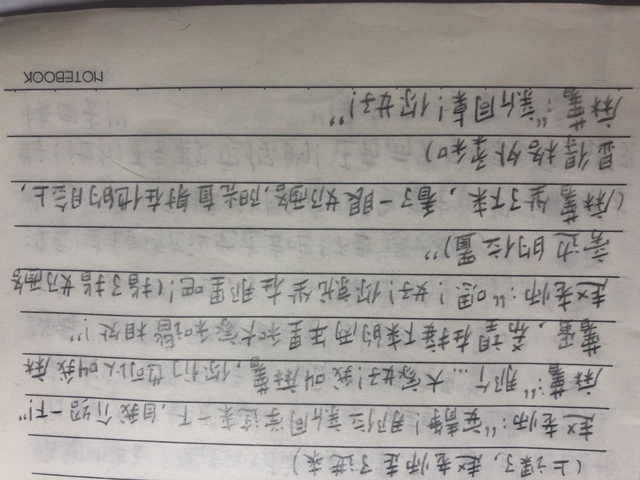 (上课了，赵老师走了进来)
赵老师：“安静！那位新同学过来一下，自我介绍一下！”
麻薯：“那个…大家好！我叫麻薯，你们也可以叫我麻
薯，希望在接下来的两年里和大家和谐相处！”
赵老师：“嗯！好！你就坐在那里吧！(指了指奶面包
旁边的位置)”
(麻薯坐了下来，看了一眼奶面包，阳光直射在他的脸上，
显得格外柔和)
麻薯：“新同桌！你好！”
NOTEBOOK